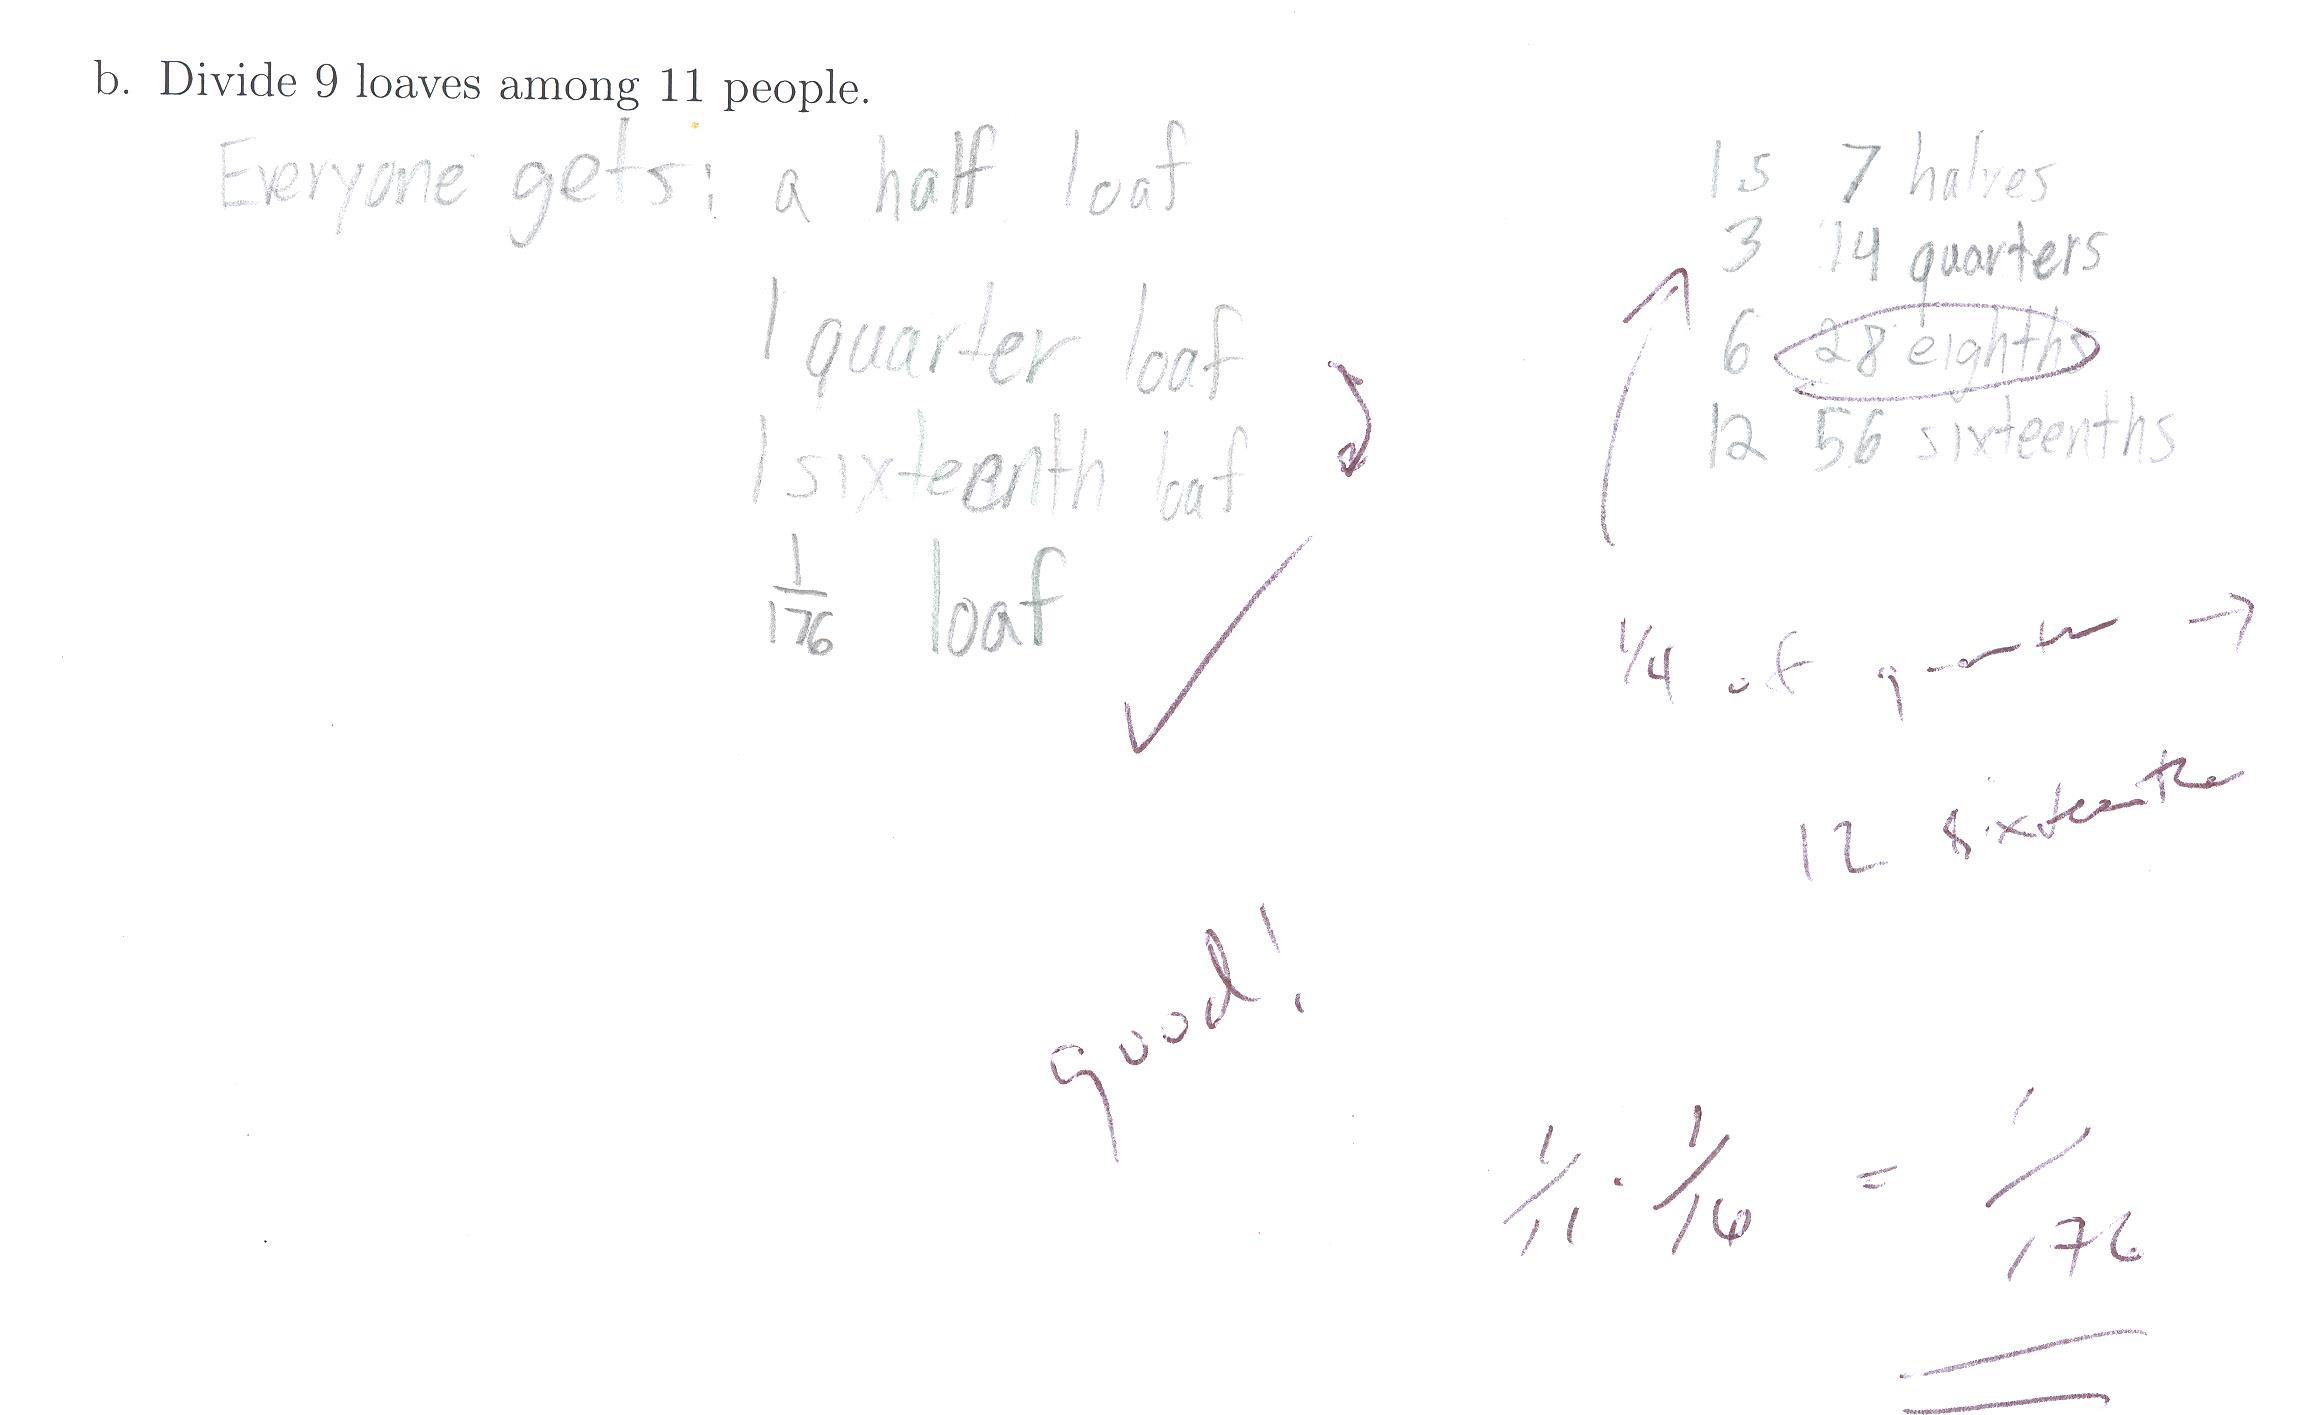 b. Divide 9 loaves among 11 people.
Everyone gets: a half loaf
1 quarter loaf
1 sixteenth loaf
1/176 loaf
15 7 halves
3 14 quarters
6 28 eighths
12 56 sixteenths
1/4 of quarter →
12 sixteenths
good!
1/11 · 1/16 = 1/176